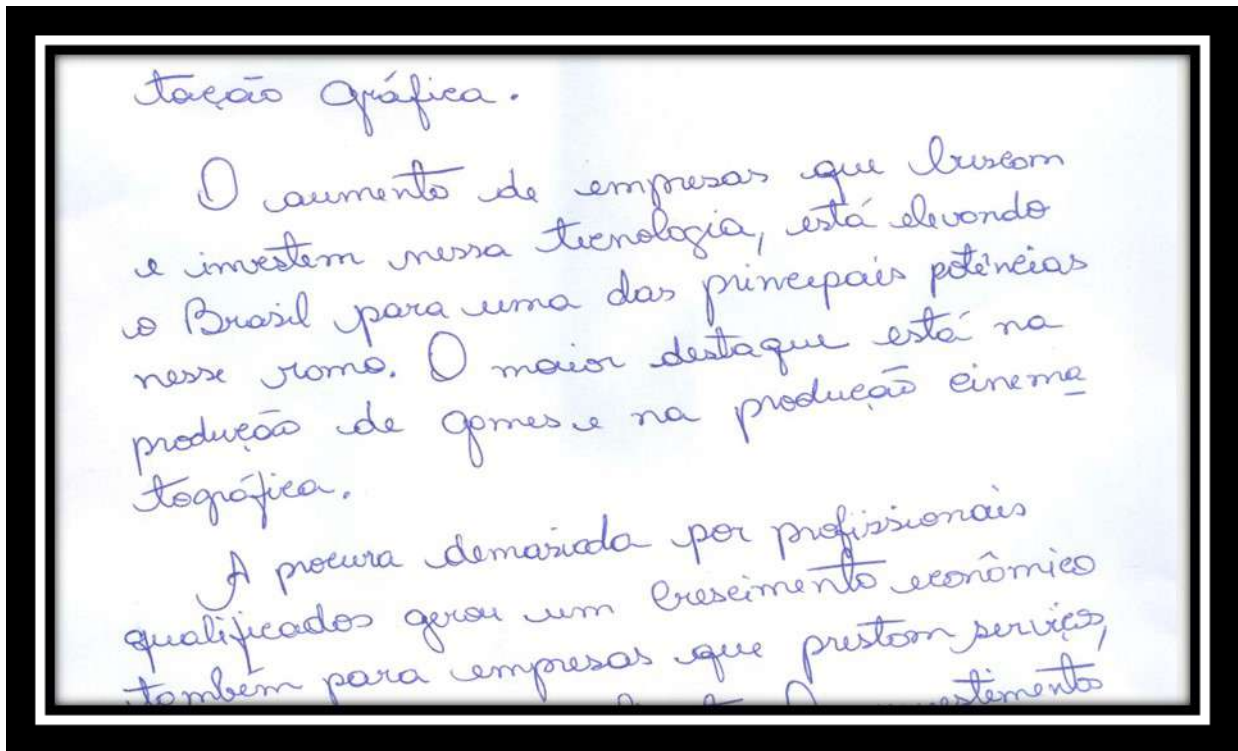 tação Gráfica.
O aumento de empresas que buscam
e investem nessa tecnologia, está elevando
o Brasil para uma das principais potências
nesse ramo. O maior destaque está na
produção de games e na produção cinema
tográfica.
A procura demasiada por profissionais
qualificados gerou um crescimento econômico
também para empresas que prestam serviços,